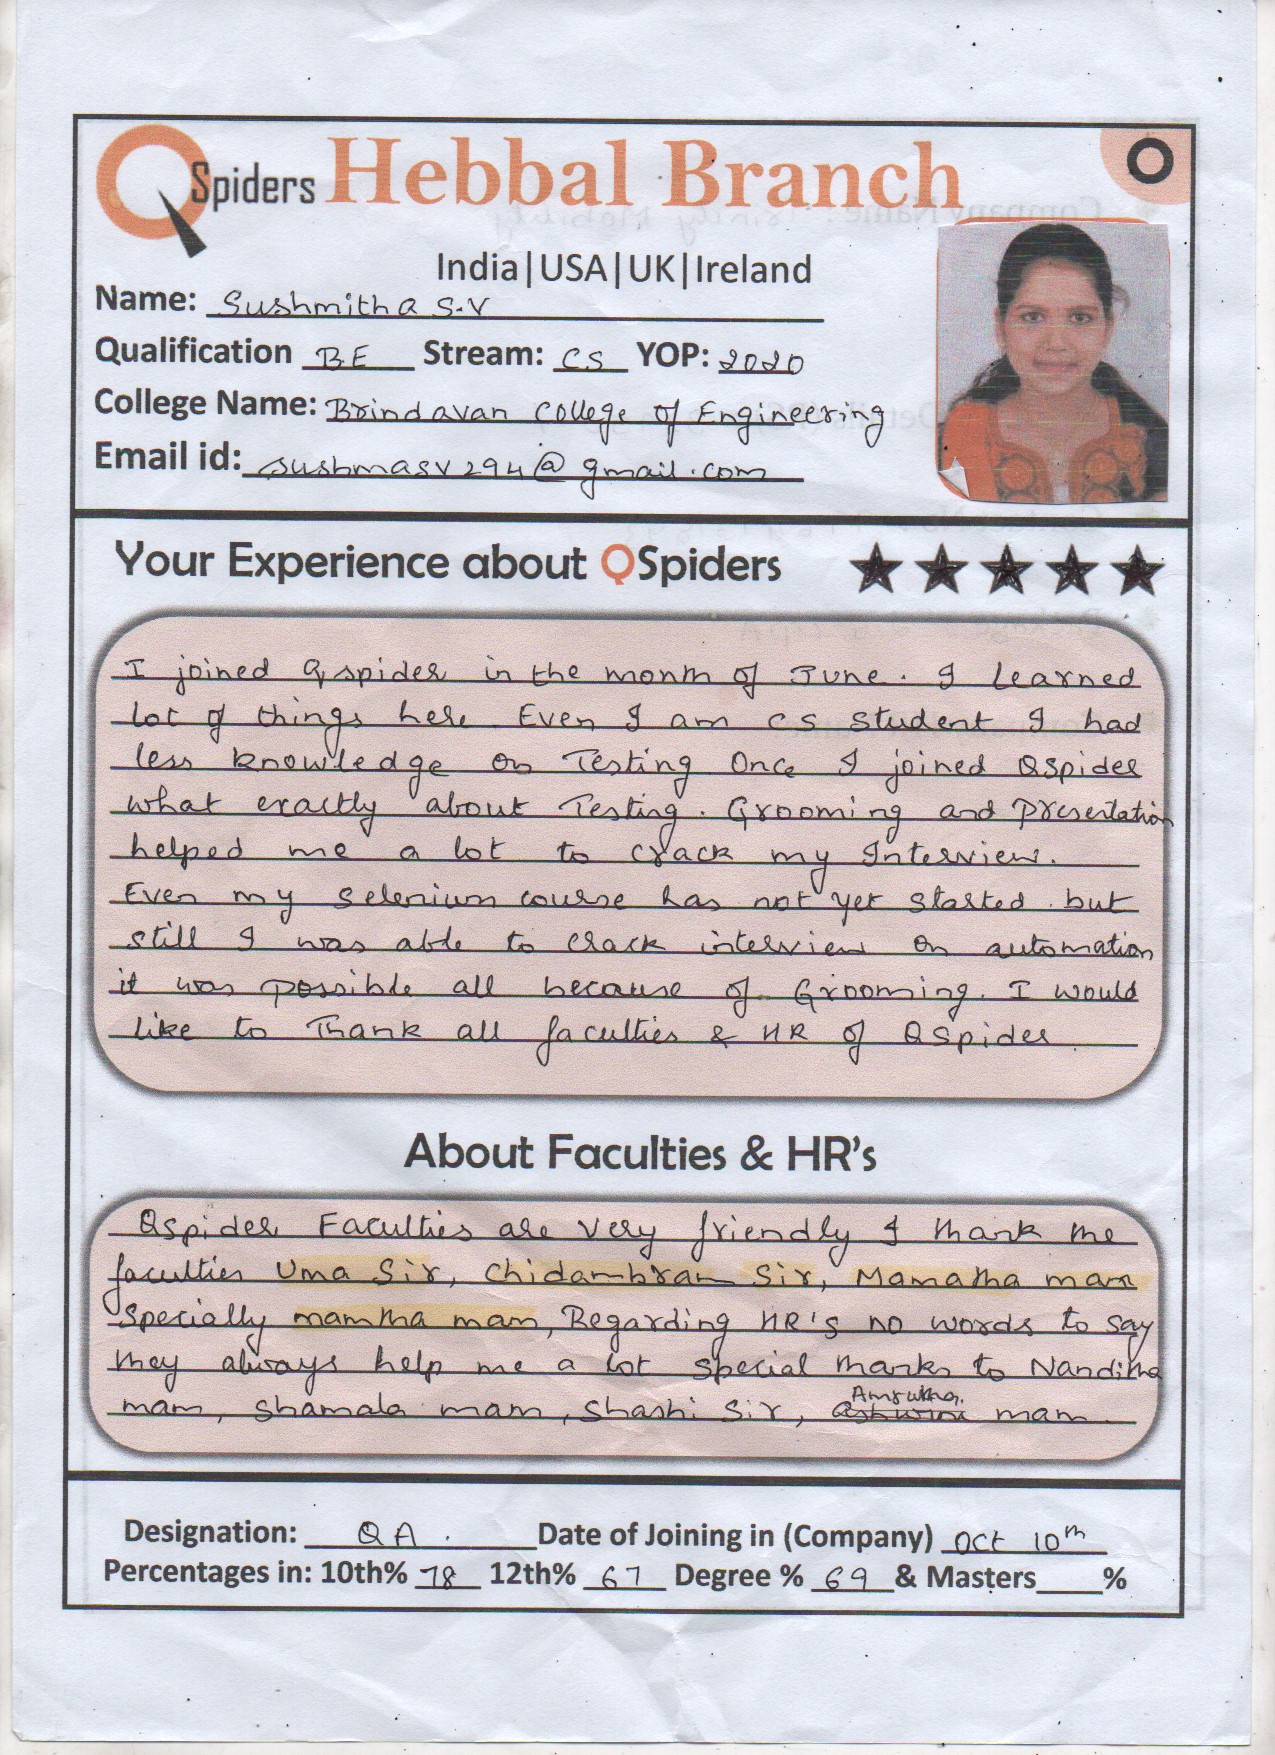 QSpiders Hebbal Branch
India|USA|UK|Ireland
Name: Sushmitha S.V
Qualification BE Stream: CS YOP: 2020
College Name: Brindavan College of Engineering
Email id: sushmasv294@gmail.com
Your Experience about QSpiders
I joined Qspider in the month of June. I learned
lot of things here Even I am CS Student I had
less knowledge on Testing Once I joined QSpider
what exactly about Testing. Grooming and Presentation
helped me a lot to crack my Interview.
Even my Selenium course has not yet started but
still I was able to crack interview on automation
it was possible all because of Grooming. I would
like to Thank all faculties & HR of QSpider
About Faculties & HR's
Qspider Faculties are very friendly I thank the
faculties Uma Sir, Chidambram Sir, Mamatha mam
Specially mamtha mam, Regarding HR's no words to say
they always help me a lot special thanks to Nanditha
Amrutha.
mam, Shamala mam, Shashi Sir, Ashwini mam
Designation: QA. Date of Joining in (Company) Oct 10th
Percentages in: 10th% 78 12th% 67 Degree % 69 & Masters____%